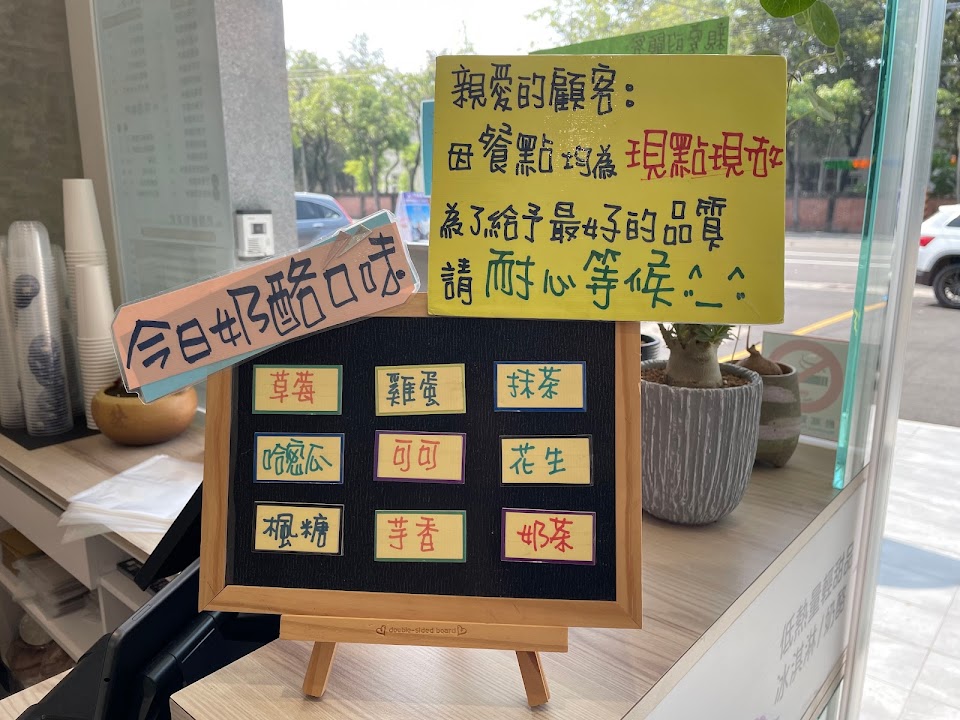 親愛的顧客：
母餐點均為現點現做
為了給予最好的品質
請耐心等候^_^
今日奶酪口味
草莓 雞蛋 抹茶
哈密瓜 可可 花生
楓糖 芋香 奶茶
double-sided board
低熱量輕甜品
冰淇淋